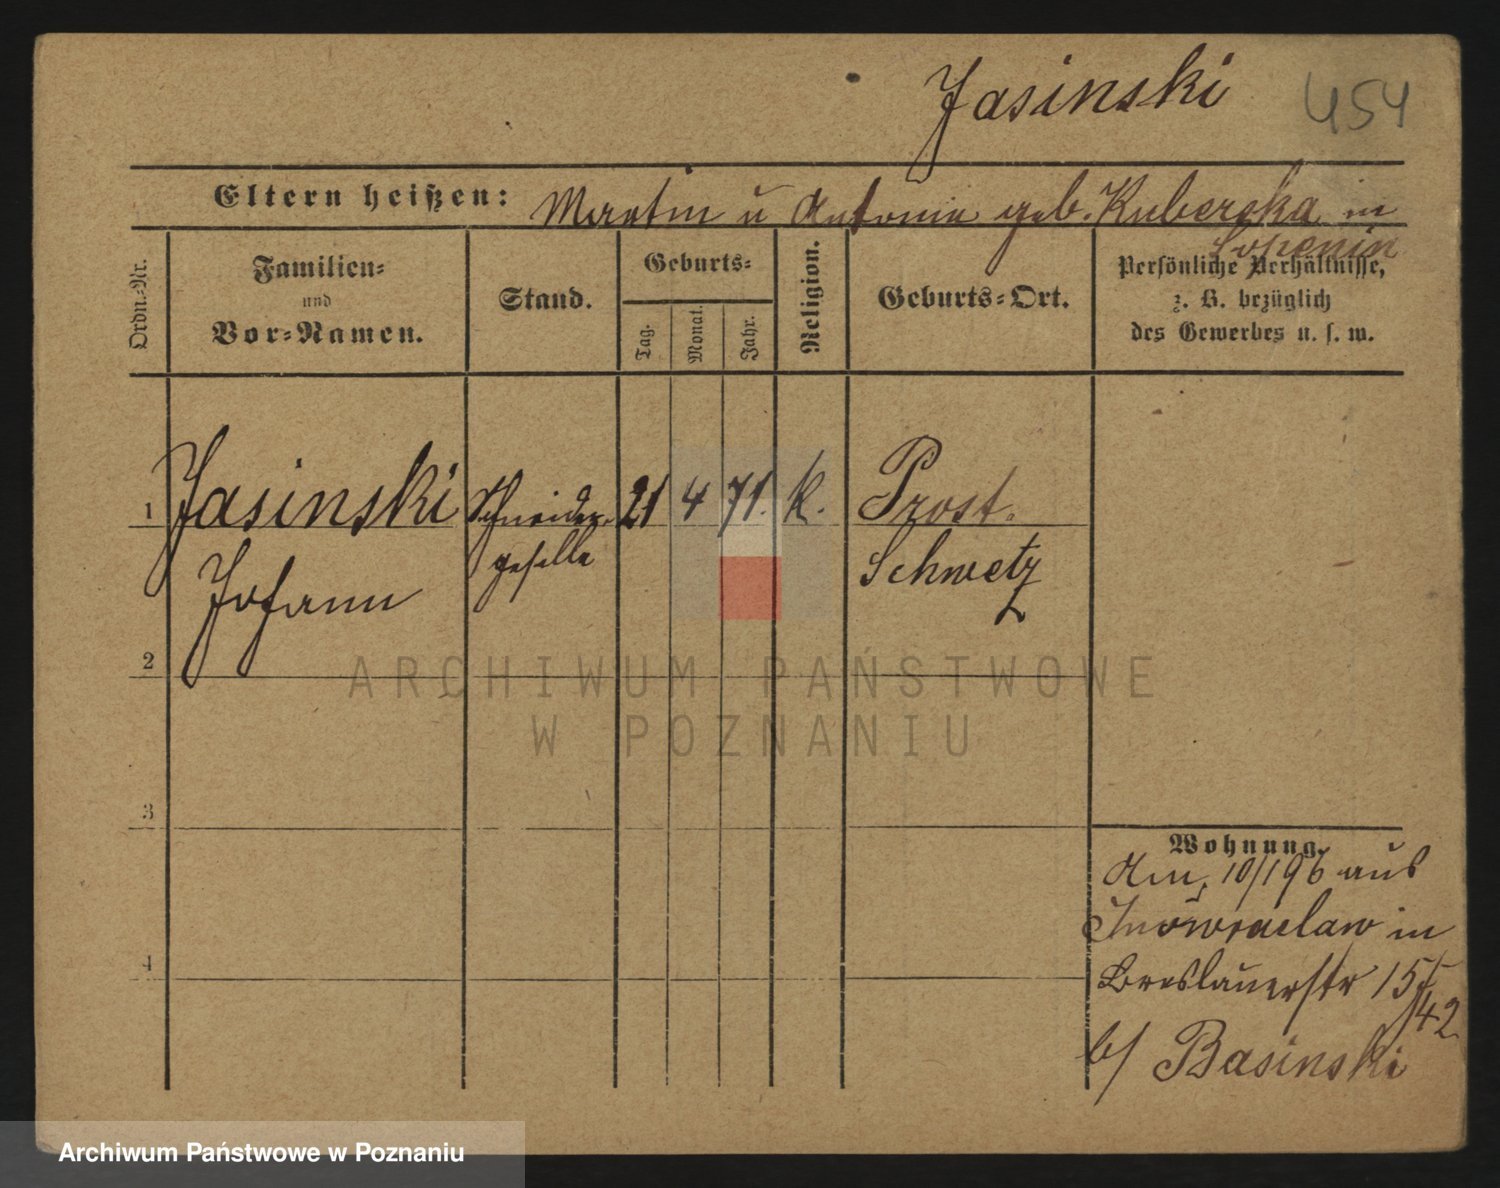 Jasinski 454
Eltern heißen: Martin u Antonie geb. Kuberska in
Lopenin
Ordn.-Nr.
Familien-
und
Vor-Namen.
Stand.
Geburts-
Tag.
Monat.
Jahr.
Religion.
Geburts-Ort.
Persönliche Verhältnisse,
z. B. bezüglich
des Gewerbes u. s. w.
1 Jasinski Schneider- 21 4 71. k. Prost.
Johann geselle Schwetz
2
3
4
Wohnung.
Am, 10/1 96 aus
Inowraclaw in
Breslauerstr 15
/42
b/ Basinski
ARCHIWUM PAŃSTWOWE
W POZNANIU
Archiwum Państwowe w Poznaniu